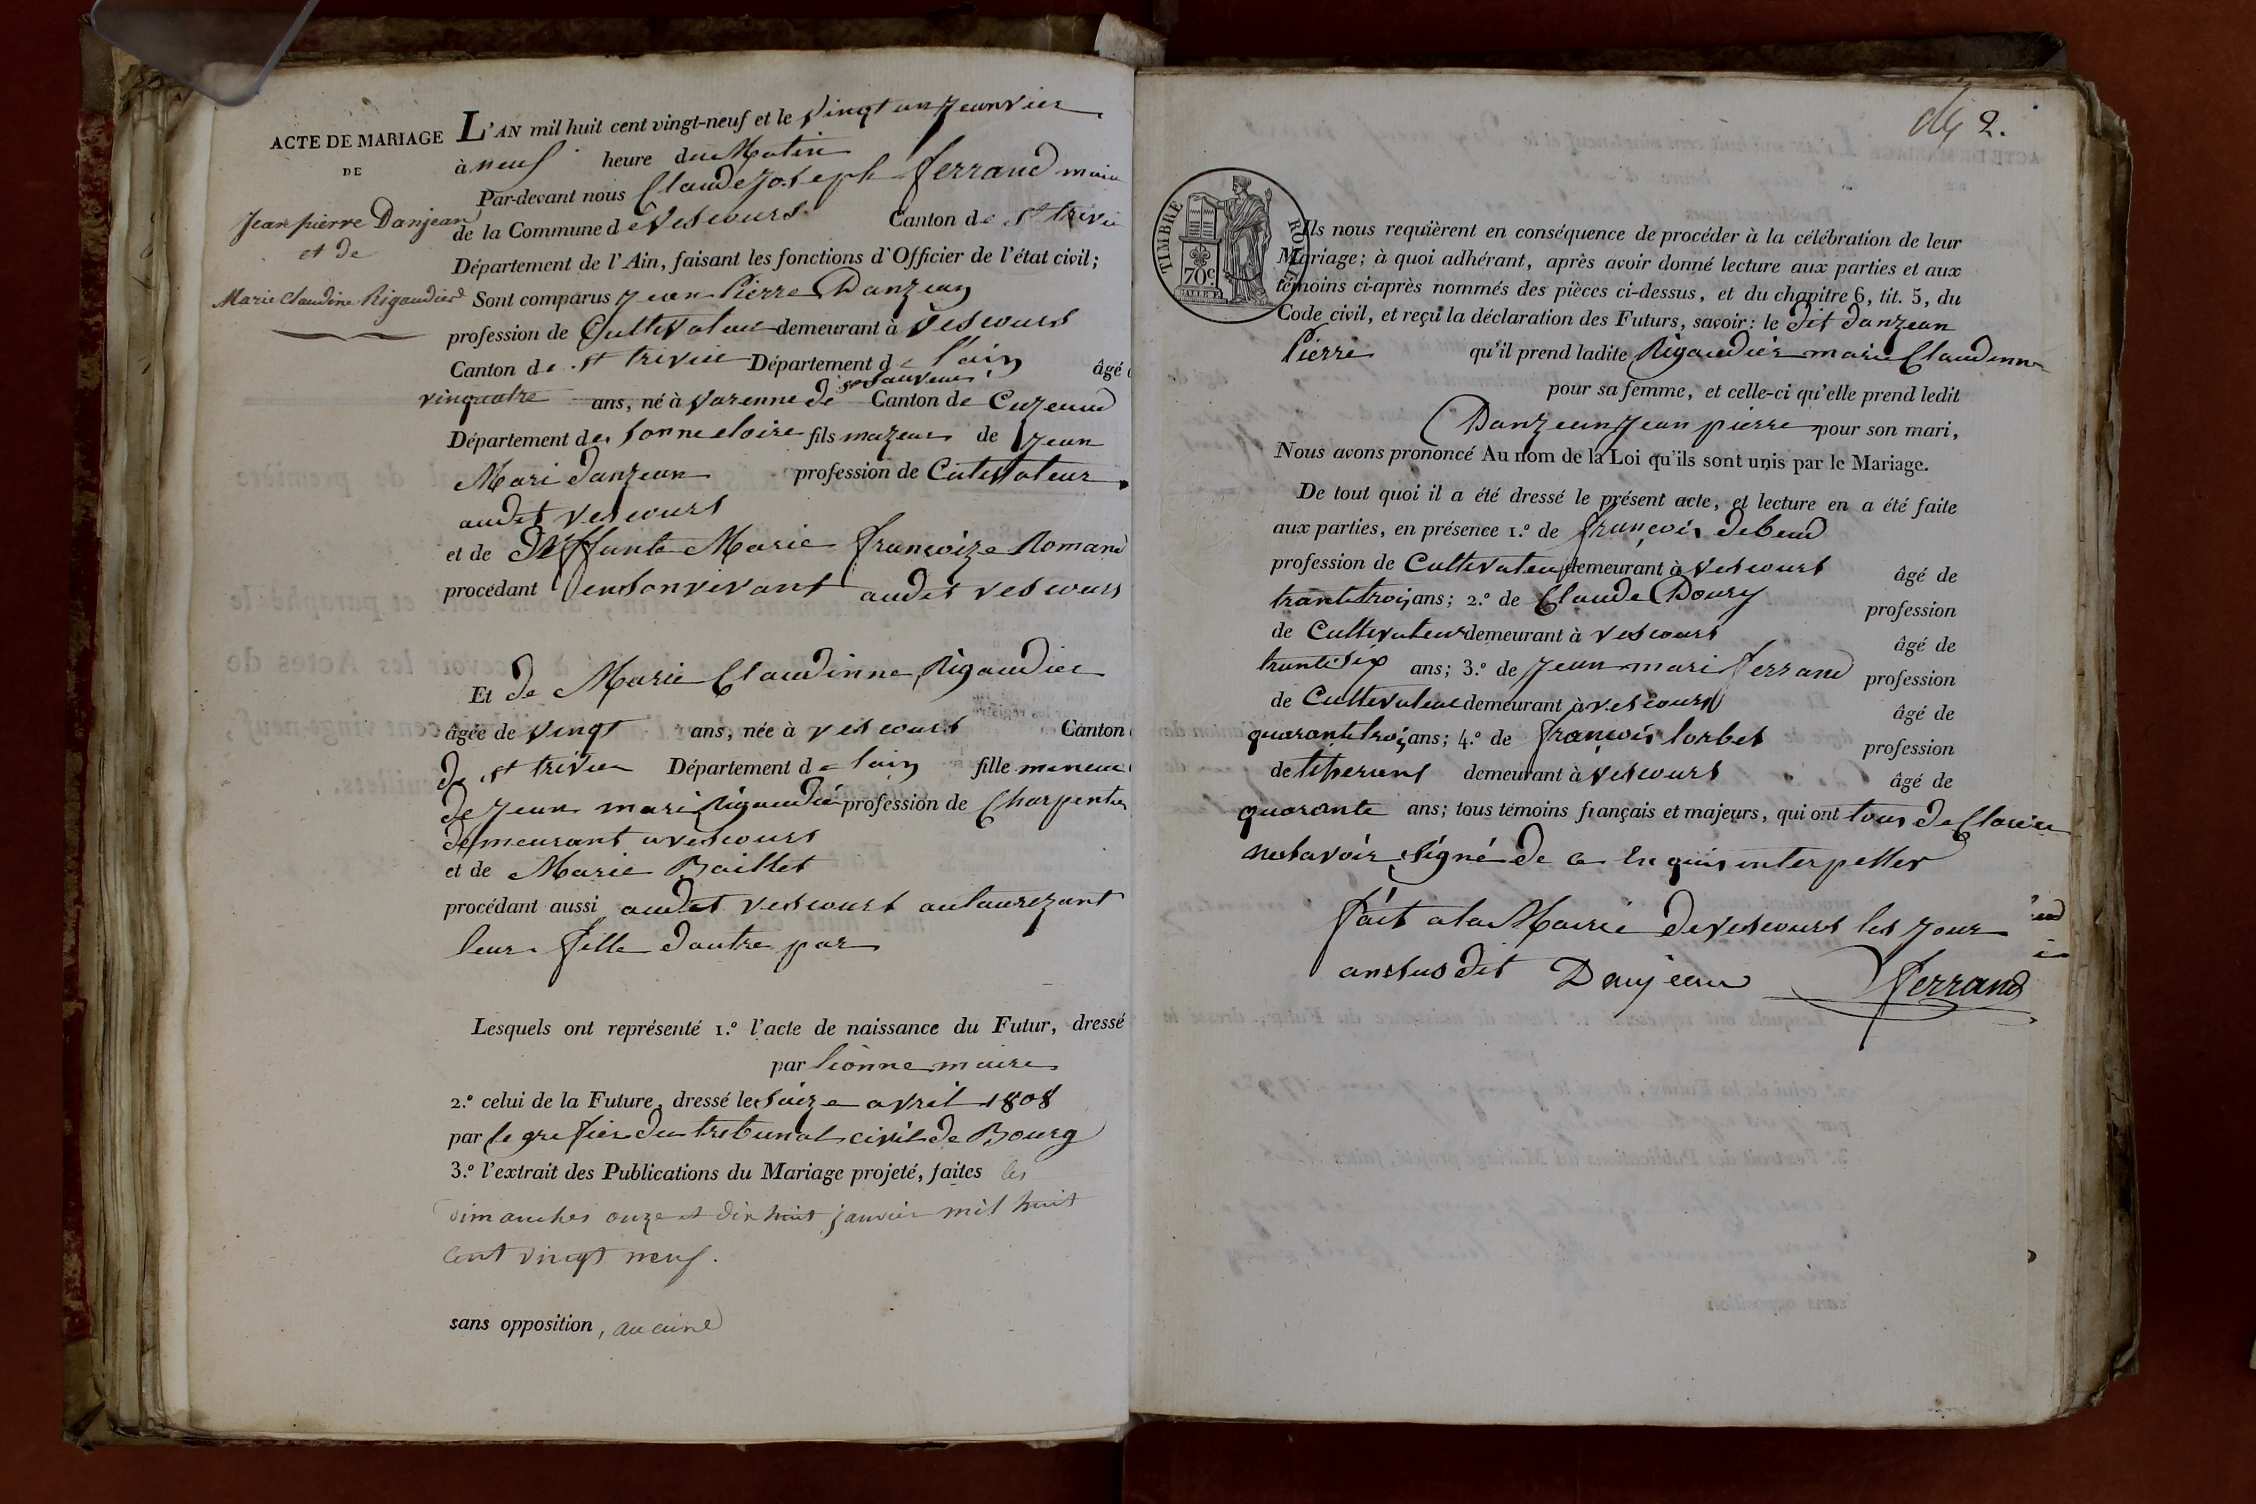 ACTE DE MARIAGE
DE
Jean pierre Danjean
et de
Marie Claudine Rigaudier
L'AN mil huit cent vingt-neuf et le vingt un Jeanvier
à neuf heure du Matin
Par-devant nous Claude Joseph ferrand maire
de la Commune de Vescours Canton de st trivie
Département de l'Ain, faisant les fonctions d'Officier de l'état civil;
Sont comparus Jean Pierre Danzean
profession de Cultivateur demeurant à Vescours
Canton de st trivie Département de l'ain âgé
vinquatre ans, né à Varenne de st sauveur Canton de Cuzeaud
Département de sonneeloire fils mazeur de Jean
Mari danzean profession de Cutivateur
audit vescours
et de deffunte Marie francoize Romand
procédant en son vivant audit vescours
Et de Marie Claudinne Rigaudier
âgée de vingt ans, née à vescours Canton
de st trivier Département de lain fille mineure
de Jean mari Rigaudié profession de Charpentier
demeurant a vescours
et de Marie Baillet
procédant aussi audit vescours autaurezant
leur fille dautre par
Lesquels ont représenté 1.º l'acte de naissance du Futur, dressé
par lionne maire
2.º celui de la Future, dressé le saize avril 1808
par le grefier du tribunal civil de Bourg
3.º l'extrait des Publications du Mariage projeté, faites les
dimanches onze et dix huit janvier mil huit
cent vingt neuf.
sans opposition, aucune
2.
TIMBRE ROYAL
70c
Ils nous requièrent en conséquence de procéder à la célébration de leur
Mariage; à quoi adhérant, après avoir donné lecture aux parties et aux
témoins ci-après nommés des pièces ci-dessus, et du chapitre 6, tit. 5, du
Code civil, et reçu la déclaration des Futurs, savoir: le dit danzean
Pierre qu'il prend ladite Rigaudier marie Claudinne
pour sa femme, et celle-ci qu'elle prend ledit
Danzean Jean pierre pour son mari,
Nous avons prononcé Au nom de la Loi qu'ils sont unis par le Mariage.
De tout quoi il a été dressé le présent acte, et lecture en a été faite
aux parties, en présence 1.º de françois debeud
profession de Cultivateur demeurant à vescours âgé de
trantetrois ans; 2.º de Claude Doury profession
de Cultivateur demeurant à vescours âgé de
trantesix ans; 3.º de Jean mari ferrand profession
de Cultivateur demeurant à vescours âgé de
quarantetrois ans; 4.º de françois lorbet profession
de titserant demeurant à vescours âgé de
quarante ans; tous témoins français et majeurs, qui ont tous declarée
nesavoir signé de ce enquis interpeller
fait ala Mairie de vescours les jour
ansusdit Danjean ferrand